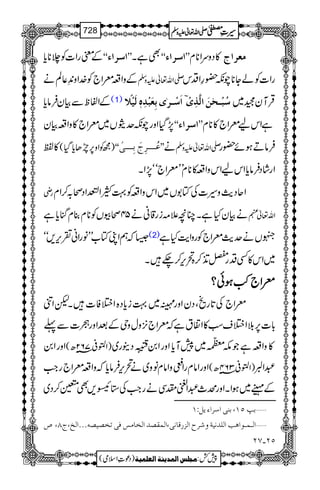 سیرتِ مصطفیٰ صلی اللہ تعالیٰ علیہ وسلم
728
معراج کا دوسرا نام ’’اسراء‘‘ بھی ہے۔ ’’اسراء‘‘ کے معنی رات کو چلانا یا
رات کو لے جانا چونکہ حضور اقدس صلی اللہ تعالیٰ علیہ وسلم کے واقعہ معراج کو خداوند عالم نے
قرآن مجید میں سُبْحٰنَ الَّذِیْٓ اَسْرٰی بِعَبْدِہٖ لَیْلًا (1) کے الفاظ سے بیان فرمایا
ہے اس لیے معراج کا نام ’’اسراء‘‘ پڑ گیا اور چونکہ حدیثوں میں معراج کا واقعہ بیان
فرماتے ہوئے حضور صلی اللہ تعالیٰ علیہ وسلم نے ’’عُرِجَ بِیْ‘‘ (مجھ کو اوپر چڑھایا گیا) کا لفظ
ارشاد فرمایا اس لیے اس واقعہ کا نام ’’معراج‘‘ پڑا۔
احادیث و سیرت کی کتابوں میں اس واقعہ کو بہت کثیر التعداد صحابہ کرام رضی
اللہ تعالیٰ عنہم نے بیان کیا ہے۔ چنانچہ علامہ زرقانی نے ۴۵ صحابیوں کو نام بنام گنایا ہے
جنہوں نے حدیث معراج کو روایت کیا ہے (2) جیسا کہ ہم اپنی کتاب ’’نورانی تقریریں‘‘
میں اس کا کسی قدر مفصل تذکرہ تحریر کر چکے ہیں۔
معراج کب ہوئی؟
معراج کی تاریخ، دن اور مہینہ میں بہت زیادہ اختلافات ہیں۔ لیکن اتنی
بات پر بلا اختلاف سب کا اتفاق ہے کہ معراج نزول وحی کے بعد اور ہجرت سے پہلے
کا واقعہ ہے جو مکہ معظمہ میں پیش آیا اور ابن قتیبہ دینوری (المتوفی ۲۶۷ھ) اور ابن
عبدالبر (المتوفی ۴۶۳ھ) اور امام رافعی و امام نووی نے تحریر فرمایا کہ واقعہ معراج رجب
کے مہینے میں ہوا۔ اور محدث عبدالغنی مقدسی نے رجب کی ستائیسویں بھی متعین کر دی
1……پ ۱۵، بنی اسراءیل: ۱
2……المواهب اللدنیة و شرح الزرقانی، المقصد الخامس فی تخصیصه...الخ، ج۸، ص
۲۵۔۲۷
پیش کش: مجلس المدینة العلمیة (دعوتِ اسلامی)